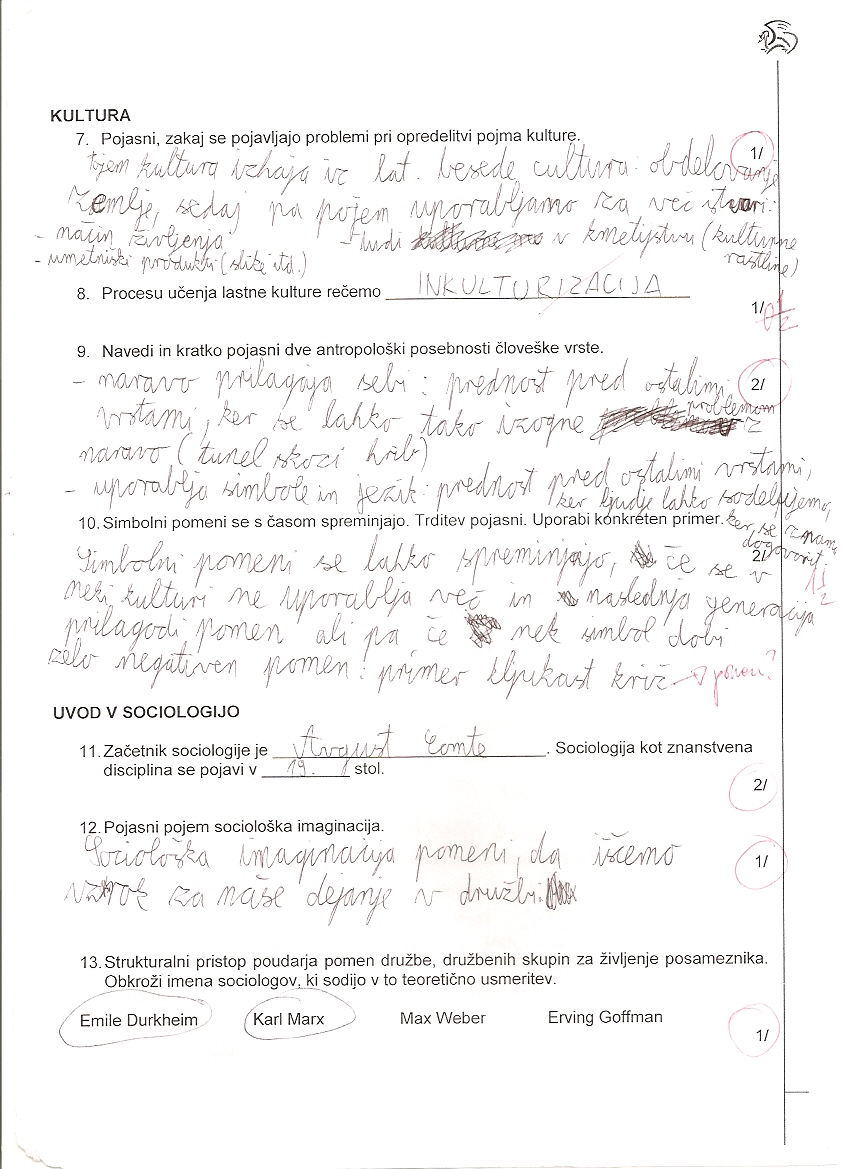 KULTURA
7. Pojasni, zakaj se pojavljajo problemi pri opredelitvi pojma kulture.
1/
Pojem kultura izhaja iz lat. besede cultura: obdelovanje
zemlje, sedaj pa pojem uporabljamo za več stvari:
- način življenja - tudi v kmetijstvu (kulturne
- umetniški produkti (slike itd.) rastline)
8. Procesu učenja lastne kulture rečemo INKULTURIZACIJA
1/ 1/2
9. Navedi in kratko pojasni dve antropološki posebnosti človeške vrste.
2/
- naravo prilagaja sebi: prednost pred ostalimi
vrstami, ker se lahko tako izogne problemom z
naravo (tunel skozi hrib)
- uporablja simbole in jezik: prednost pred ostalimi vrstami,
ker ljudje lahko sodelujemo,
10. Simbolni pomeni se s časom spreminjajo. Trditev pojasni. Uporabi konkreten primer. ker se znamo
dogovorit.
2/
Simbolni pomeni se lahko spreminjajo, če se v
neki kulturi ne uporablja več in naslednja generacija
1 1/2
prilagodi pomen ali pa če nek simbol dobi
zelo negativen pomen: primer kljukast križ → pomen?
UVOD V SOCIOLOGIJO
11. Začetnik sociologije je Avgust Comte. Sociologija kot znanstvena
disciplina se pojavi v 19. stol.
2/
12. Pojasni pojem sociološka imaginacija.
Sociološka imaginacija pomeni, da iščemo
1/
vzrok za naše dejanje v družbi.
13. Strukturalni pristop poudarja pomen družbe, družbenih skupin za življenje posameznika.
Obkroži imena sociologov, ki sodijo v to teoretično usmeritev.
Emile Durkheim Karl Marx Max Weber Erving Goffman
1/